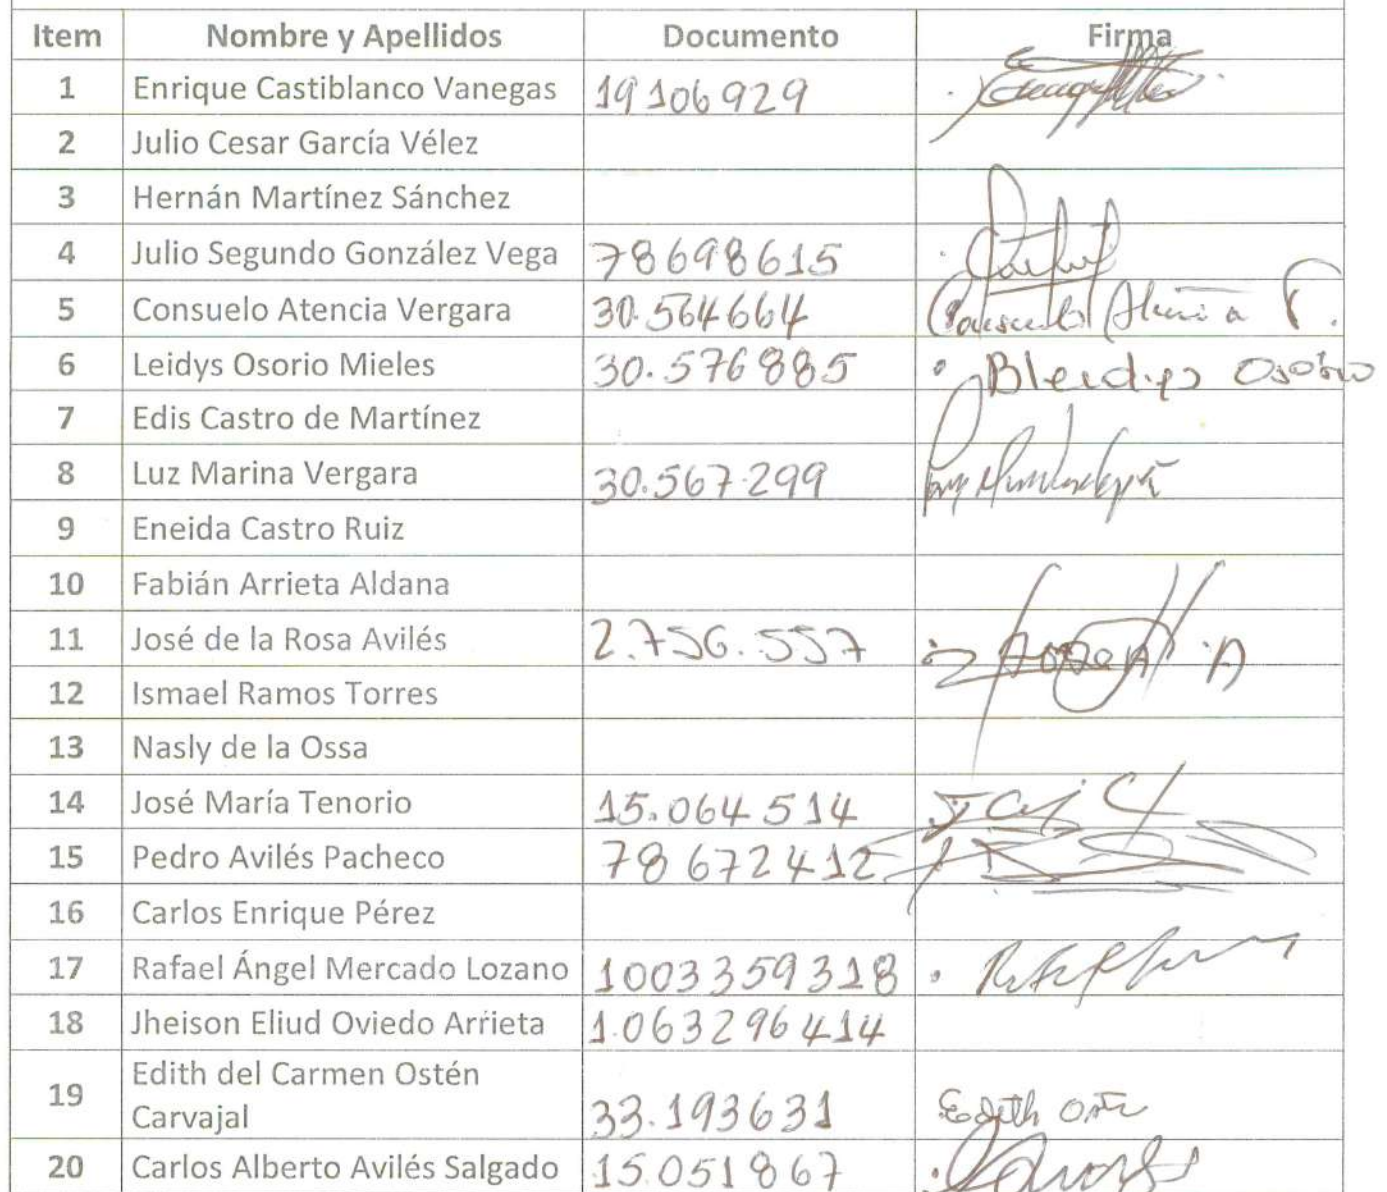 Item Nombre y Apellidos Documento Firma
1 Enrique Castiblanco Vanegas 19106929
2 Julio Cesar García Vélez
3 Hernán Martínez Sánchez
4 Julio Segundo González Vega 78698615
5 Consuelo Atencia Vergara 30.564664 Consuelo Atencia V.
6 Leidys Osorio Mieles 30.576885 Bleidys Osorio
7 Edis Castro de Martínez
8 Luz Marina Vergara 30.567.299
9 Eneida Castro Ruiz
10 Fabián Arrieta Aldana
11 José de la Rosa Avilés 2.756.557
12 Ismael Ramos Torres
13 Nasly de la Ossa
14 José María Tenorio 15.064514
15 Pedro Avilés Pacheco 78672412
16 Carlos Enrique Pérez
17 Rafael Ángel Mercado Lozano 1003359318
18 Jheison Eliud Oviedo Arrieta 1.063296414
19 Edith del Carmen Ostén
Carvajal 33.193631 Edith
20 Carlos Alberto Avilés Salgado 15.051867